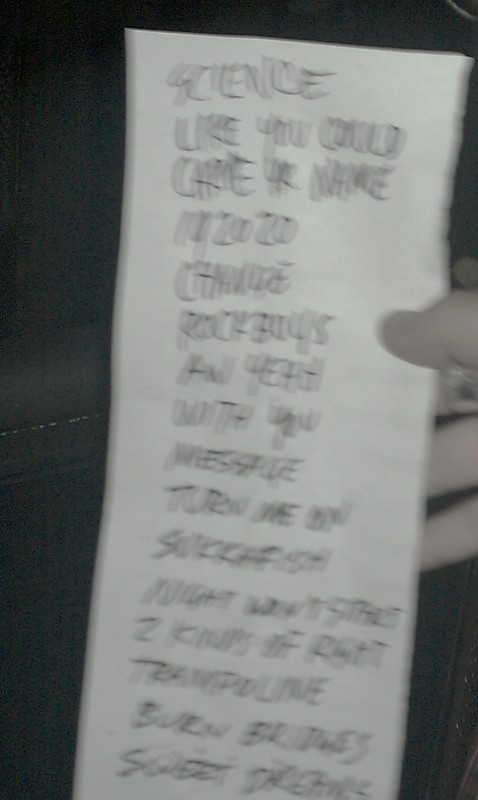 SCIENCE
LIKE YOU COULD
CARVE YR NAME
CHANGE
ROCKBOYS
AW YEAH
WITH YOU
MESSAGE
TURN ME ON
SUKKAFISH
NIGHT WON'T START
2 KINDS OF RIGHT
TRAMPOLINE
BURN BRIDGES
SWEET DREAMS